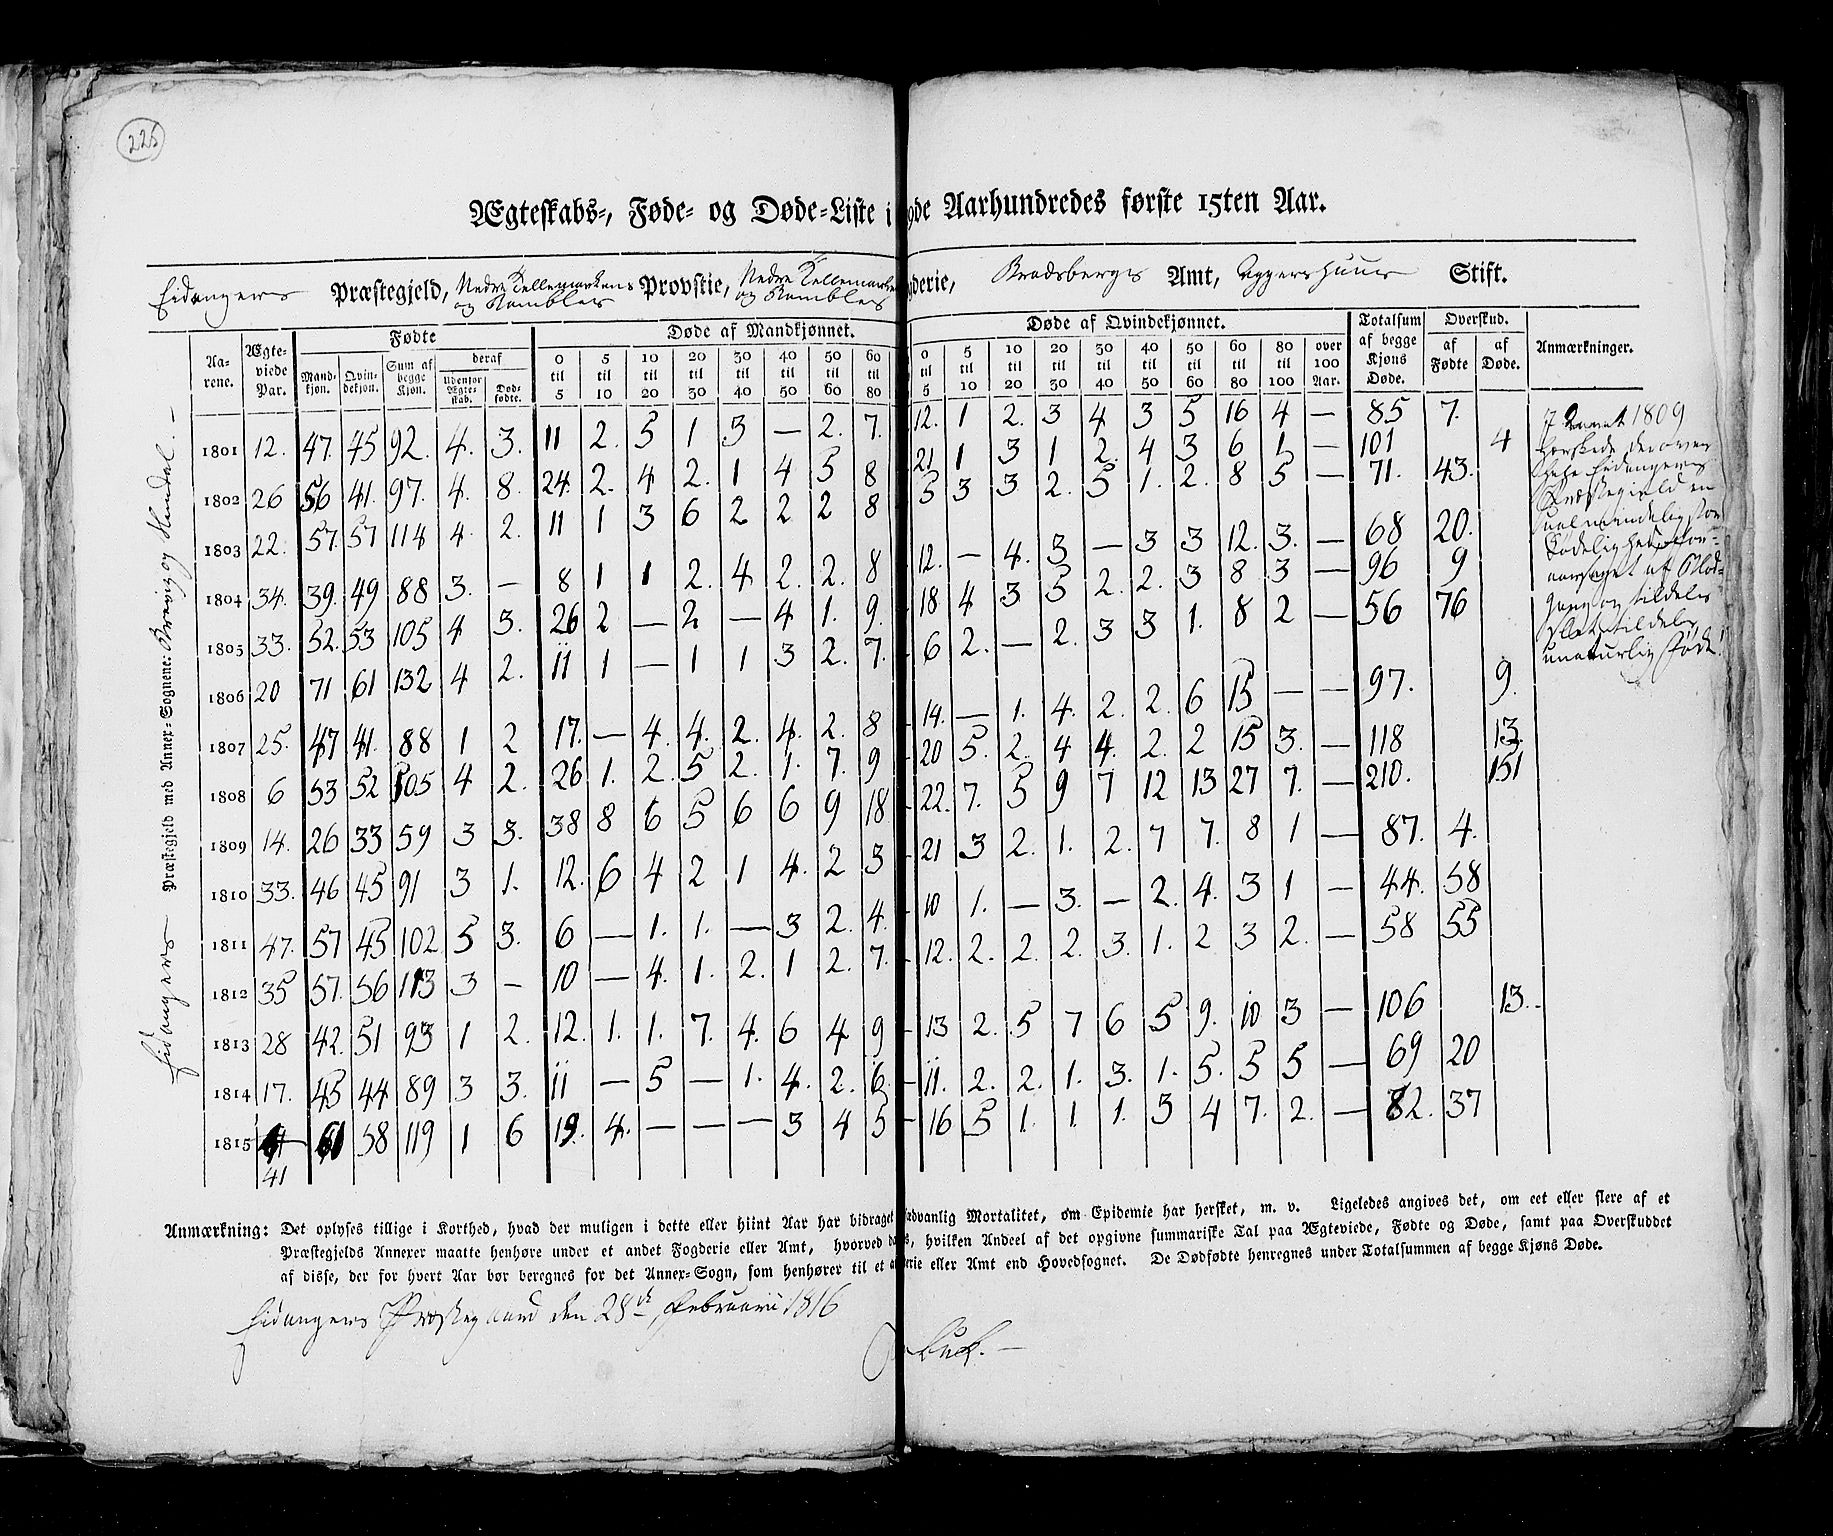 225
Ægteskabs-, Føde- og Døde-Liste i 9de Aarhundredes første 15ten Aar.
Eidangers Præstegjeld, Nedre Tellemarkens og Bambles Provstie, Nedre Tellemarkens og Bambles gderie, Bradsbergs Amt, Aggershuus Stift.
Eidangers Præstegjeld med Annex-Sognene: Brevig og Slundal. –
Aarene. Ægteviede Par. Fødte Døde af Mandkjønnet. Døde af Qvindekjønnet. Totalsum af begge Kjøns Døde. Overskud. Anmærkninger.
Mandkjøn. Qvindekjøn. Sum af begge Kjøn. deraf udenfor Ægteskab. Dødfødte. af Fødte af Døde.
0 til 5 5 til 10 10 til 20 20 til 30 30 til 40 40 til 50 50 til 60 60 til 80 0 til 5 5 til 10 10 til 20 20 til 30 30 til 40 40 til 50 50 til 60 60 til 80 80 til 100 over 100 Aar.
1801 12. 47. 45 92. 4. 3. 11 2. 5 1 3 — 2. 7. 12. 1 2. 3 4 3 5 16 4 — 85 7.
1802 26 56 41. 97. 4. 8. 24. 2. 4 2. 1 4 5 8 21 1 3 1 2. 4 3 6 1 — 101 4
1803 22. 57. 57 114 4. 2. 11 1 3 6 2 2 2 8 5 3 3 2. 5 1. 2. 8 5 — 71. 43.
1804 34. 39. 49 88 3. — 8 1 1 2. 4 2. 2. 8 12. — 4. 3 — 3 3 12. 3. — 68 20.
1805 33. 52. 53 105 4 3. 26 2 — 2 — 4 1. 9. 18 4 3 5 2. 2. 3 8 3 — 96 9
1806 20 71 61 132 4 2. 11 1 — 1 1 3 2. 7. 6 2. — 2. 3 3 1. 8 2 — 56 76
1807 25. 47 41. 88 1 2 17. — 4. 4. 2. 4. 2. 8 14. — 1. 4. 2. 2. 6 15 — — 97. 9.
1808 6 53 52 105 4 2. 26 1. 2. 5 2. 1. 7. 9 20 5. 2. 4 4. 2. 2 15 3. — 118 13.
1809 14. 26 33 59 3 3. 38 8 6 5 6 6 9 18 22. 7. 5 9 7 12 13 27 7. — 210. 151
1810 33. 46 45 91 3 1. 12. 6 4 2 1 4. 2 3 21 3 2. 1. 2. 7 7. 8 1 — 87. 4.
1811 47. 57 45 102. 5 3. 6 — 1. 1. — 3 2. 4. 10 1. — 3. — 2. 4. 3 1 — 44. 58
1812 35 57. 56 113 3 — 10 — 4. 1. 2. 1 2. 7. 12. 2. 2. 2. 3. 1. 2 3 2. — 58 55
1813 28 42. 51 93 1 2. 12. 1. 1. 7. 4. 6 4 9 13 2. 5 7 6 5 9. 10 3 — 106 13.
1814 17. 45 44 89 3 3. 11 — 5 — 1. 4. 2. 6. 11. 2. 2. 1. 3. 1. 5. 5 5 — 69 20
1815 61 58 119 1 6 19. 4. — — — 3 4 5 16 5 1. 1 1. 3 4 7. 2. — 82. 37
41
1809
herskede der over
Eidangers
Præstegield en
ualmindelig stor
Dødelighed
aarsaget af Blod-
gang og tildels
tildels
unaturlig Føde.
Anmærkning: Det oplyses tillige i Korthed, hvad der muligen i dette eller hiint Aar har bidraget sædvanlig Mortalitet, om Epidemie har hersket, m. v. Ligeledes angives det, om eet eller flere af et
Præstegjelds Annexer maatte henhøre under et andet Fogderie eller Amt, hvorved da, hvilken Andeel af det opgivne summariske Tal paa Ægteviede, Fødte og Døde, samt paa Overskuddet
af disse, der for hvert Aar bør beregnes for det Annex-Sogn, som henhører til et erie eller Amt end Hovedsognet. De Dødfødte henregnes under Totalsummen af begge Kjøns Døde.
Eidangers Præstegaard den 28de Februarii 1816